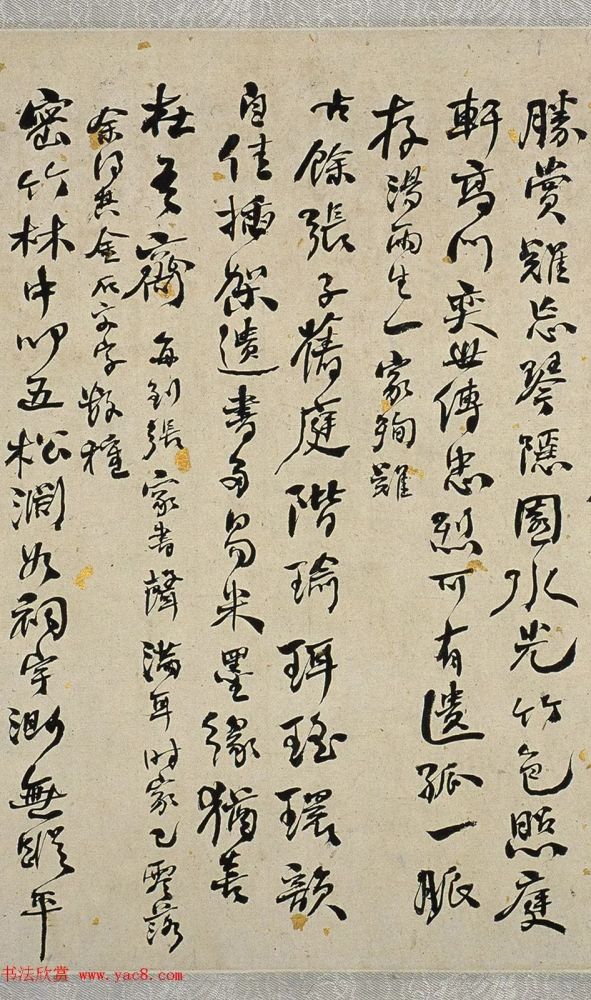 勝賞難忘琴隱園水光竹色照庭
軒高門奕世傳忠烈可有遺孤一脈
存湯雨生一家殉難
古餘張子舊庭階瑜珥瑤環韻
自佳插架遺書多易米墨緣猶喜
在吾齋每到張家書聲滿耳時家已零落
余得其金石文字數種
密竹林中叩五松澗水祠宇渺無蹤平
书法欣赏 www.yac8.com